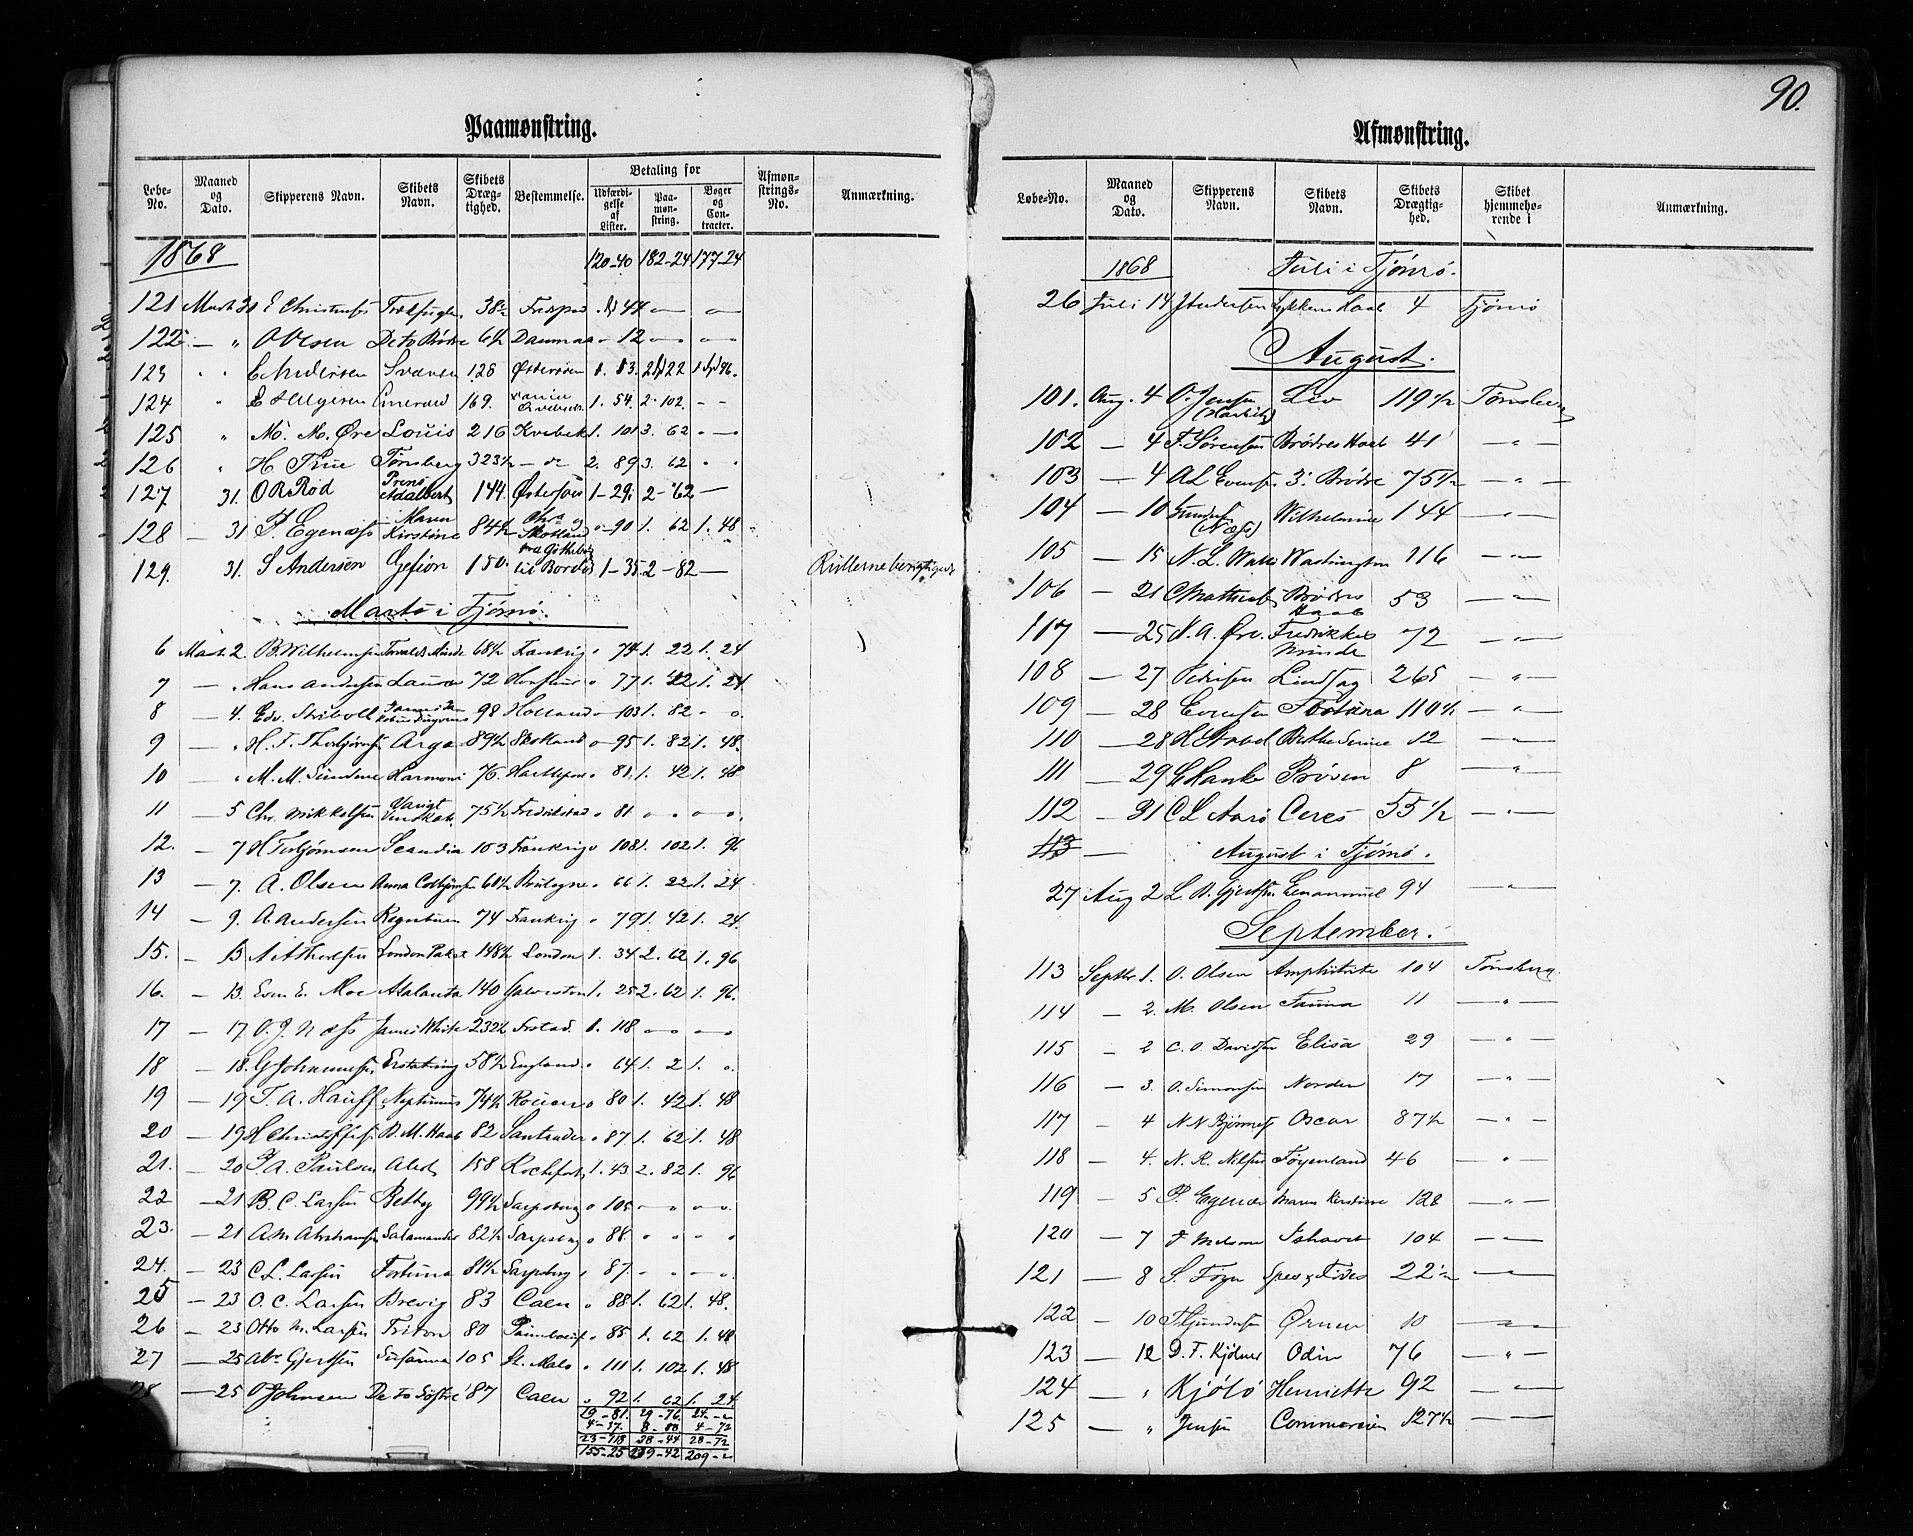 90.
Paamønstring.
Løbe-No.
Maaned og Dato.
Skipperens Navn.
Skibets Navn.
Skibets Drægtighed.
Bestemmelse.
Betaling for
Udfærdigelse af Lister.
Paamønstring.
Bøger og Contracter.
Afmønstrings-No.
Anmærkning.
1868 120-40 182-24 177-24
121 Marts 30 E Christensen 38½
122 — " Olsen De to Brødre 6½ Danmark - 12
123 " " C Andersen Svanen 128
124 " E Helgesen Emerald 169. 1. 54. 2. 102. - -
125 " M. M. Øre Louis 216 Kvebek 1. 101 3. 62 . —
126 " H Thue Tønsberg 323½ — do 2. 89 3. 62
127 31. O R Rød Prins Adalbert 144. 1-29. 2-62 —
128 - 31 P. Egenæss Maren Kirstine 84½ Skotland o-90 1. 62 1. 48
129. 31. S Andersen Gefion 150. fra Gøtheborg til Bordo 1-35 2-82 — Rullerne
Marts i Tjømø.
6 Marts 2. B. Wilhelmsen 68½ Frankrig " 74 1. 22 1. 24
7 — " Hans Andersen Laura 72 Honfleur " 77 1. 42 1. 24
8 — 4. Edv. 98 Holland - 103 1. 82 " o.
9 — " H. F. Thorbjørnsen Argo 89½ Skotland o-95 1. 82 1. 48.
10 — " M. M. Harmoni 76. Hartlepool " 81. 1. 42 1. 48
11 — 5 Chr. Mikkelsen Varigt Venskab. 75½ Fredrikstad " 81
12. — 7 H Torbjørnsen Scandia 103 Frankrig " 108 1. 102 1. 96
13 — 7. A. Olsen Anna 68½ Bulogne " 66 1. 22 1. 24
14 — 9. A Andersen Regnbuen 74 Frankrig " 79 1. 42 1. 24.
15. — 13 London Paket 148½ London 1. 34 2. 62 1. 96
16. — 13. Even E. Moe Atalanta 140 Galveston 1. 25 2. 62 1. 96.
17 — 17. O. J. Næss James White 232½ Frstad. 1. 118
18 — 18. G Johannsen Erstatning 58½ England " 64 1. 2 1. o.
19 — 19 T. A. Hauff Neptunus 74½ Rouen " 80 1. 42 1. 48
20 — 19 H Christoffersen D. M. Haab 82 Santander " 87 1. 62 1. 48
21. — 20 P A. Paulsen Alert 158 Rochefort 1. 43 2. 82 1. 96
22 — 21 B. C. Larsen Betty 99½ Sarpsborg " 105
23. — 21 A. M Abrahamsen Salamander 82½ Sarpsborg " 88
24. — 23 C. L. Larsen Fortuna 81½ Sarpsborg " 87
25 — 23 O. C. Larsen Brevig 83 Caen " 88 1. 62 1. 48.
26 — 23 Otto M. Larsen Triton 80 Paimboeuf " 85 1. 62 1. 48
27 — 25 Abr. Gjertsen Susanna 105 St. Malo " 111 1. 102 1. 48
28 — 25 O Johnsen De to Søstre 87 Caen " 92 1. 62 1. 24
19-81. 29-76. 24-"
4-37. 8-88 4-72
23-118 38-44 28-72
155-25 219-42 209-"
Afmønstring.
Løbe-No.
Maaned og Dato.
Skipperens Navn.
Skibets Navn.
Skibets Drægtighed.
Skibet hjemmehørende i
Anmærkning.
1868 Juli i Tjømø.
26 Juli 14 J Andersen Lykkens Haab 4 Tjømø
August.
101. Aug. 4 O. Jensen Leo 119½ Tønsberg
102 — 4 F. Sørensen Brødres Haab 41 — " —
103 — 4 A L Evensen 3: Brødre 75½ — " —
104 — 10 Gundersen (Næss) Wilhelmine 144 — " —
105 — 15 N. L. Washington 116 — " —
106 — 21 C Mathisen Brødres Haab 53 — " —
107 — 25 N. A. Øre. Fredrikkes Minde 72 — " —
108 — 27 Pedersen Lindsay 265 — " —
109 — 28 Evensen 110½ — " —
110 — 28 Berthe Serine 12 — " —
111 — 29 E Hanke Prøven 8 — " —
112 — 31 C L Aarø Ceres 55½ — " —
113 — August i Tjømø.
27 Aug 2 L. B. Gjertsen Emanuel 94 — " —
September.
113 Septbr 1. O. Olsen Amphitrite 104 Tønsberg.
114 — 2. M. Olsen Fauna 11 — " —
115 — 2 C. O. Davidsen Elisa 29 — " —
116 — 3. O. Simonsen Norden 17 — " —
117 — 4 N N Bjønnes Oscar 87½ — " —
118 — 4. N. R. Nilsen Føyenland 46 — " —
119 — 5 P. Egenæs Maren Kirstine 128 — " —
120 — 7 F Melsom Ishavet 104 — " —
121 — 8 S. Føyn Spes & Fides 22½ — " —
122 — 10 Gundersen Ørnen 10 — " —
123 — 12 D. F. Kjølner Odin 76 — " —
124 — " Kjølø Henriette 92 — " —
125 — " Jensen Commersen 127½ — " —